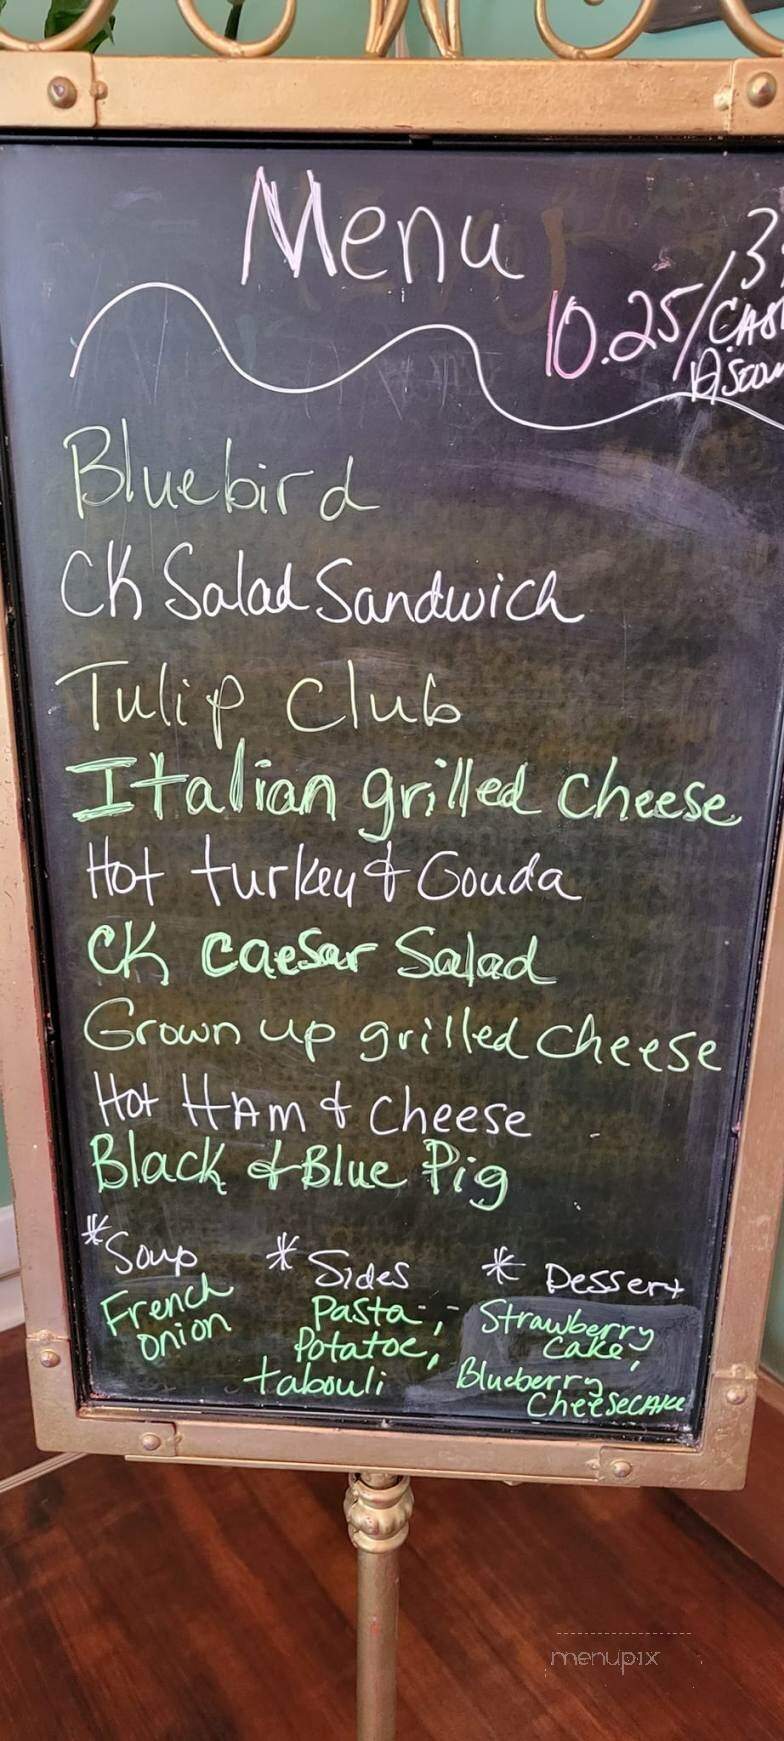 Menu
10.25/
Bluebird
CK Salad Sandwich
Tulip Club
Italian grilled cheese
Hot turkey & Gouda
CK Caesar Salad
Grown up grilled cheese
Hot HAm & Cheese
Black & Blue Pig
*Soup
French
onion
* Sides
Pasta,
Potatoe,
tabouli
* Dessert
Strawberry
cake,
Blueberry
CheeseCAKe
menupix